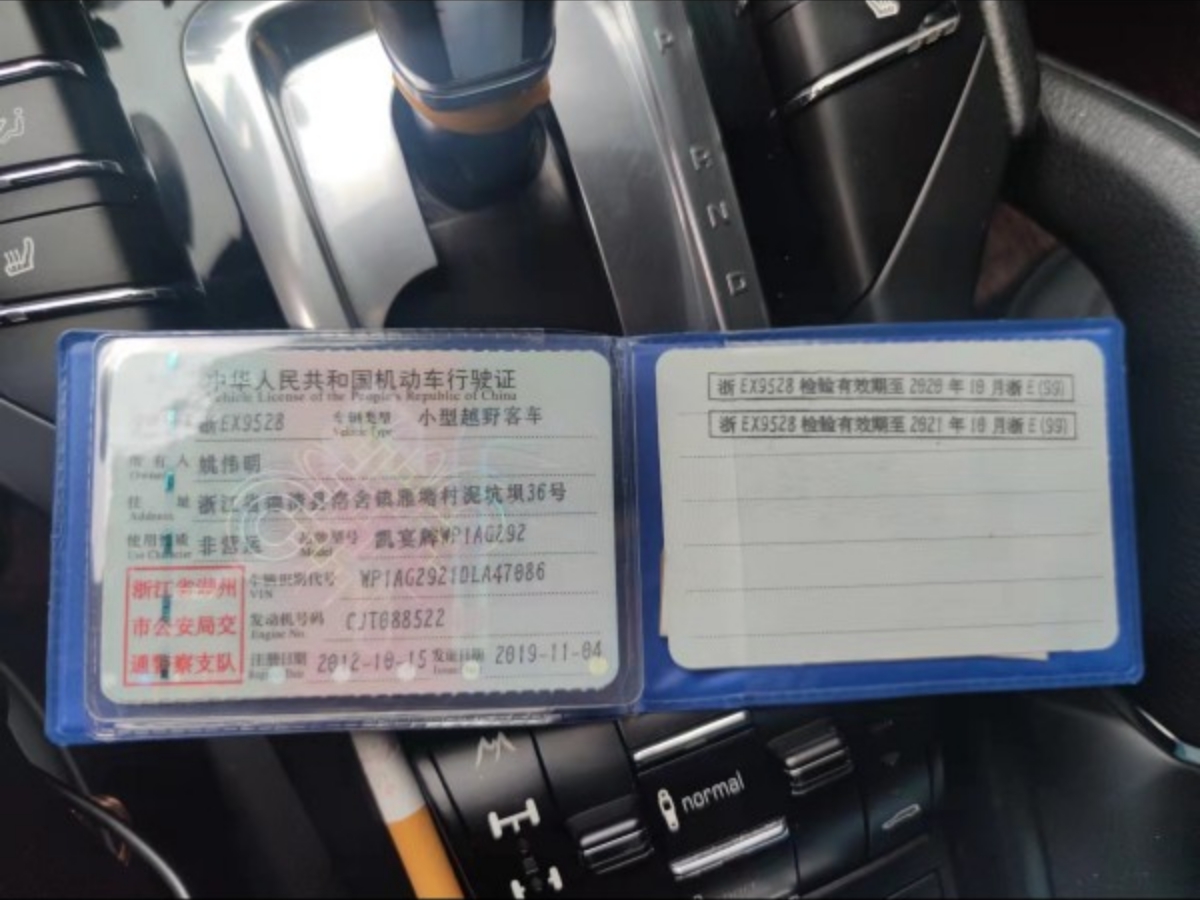 P
R
N
D
中华人民共和国机动车行驶证
Vehicle License of the People's Republic of China
浙EX9528 车辆类型 小型越野客车
Vehicle Type
所有人 姚伟明
Owner
住 址 浙江省德清县洛舍镇雁塘村泥坑坝36号
Address
使用性质 非营运 品牌型号 凯宴牌WP1AG292
Use Character Model
浙江省湖州
市公安局交
通警察支队
车辆识别代号 WP1AG2921DLA47086
VIN
发动机号码 CJT088522
Engine No.
注册日期 2012-10-15 发证日期 2019-11-04
Register Date Issue Date
浙EX9528 检验有效期至 2020 年 10 月浙 E(99)
浙EX9528 检验有效期至 2021 年 10 月浙 E(99)
normal